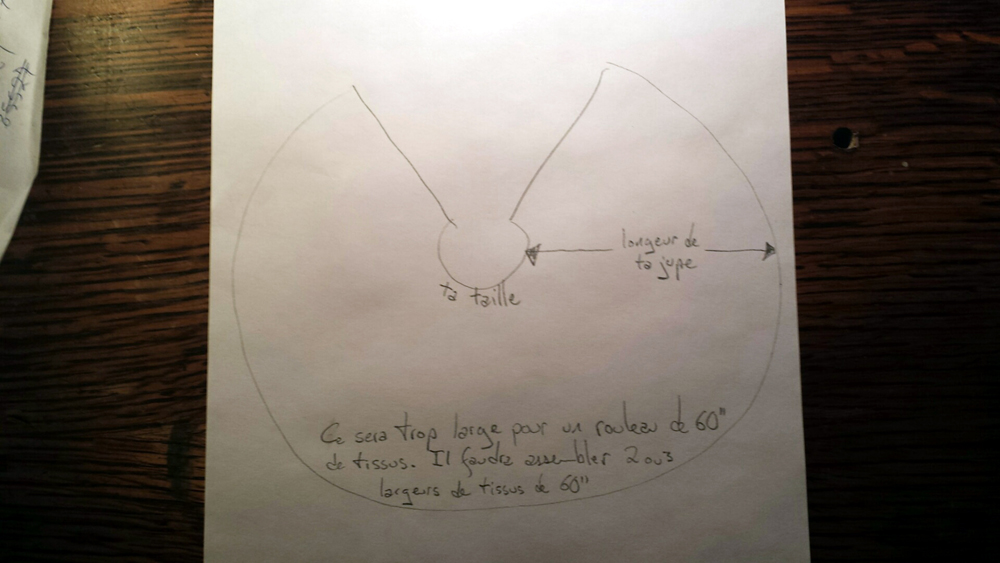 longeur de
ta jupe
ta taille
Ce sera trop large pour un rouleau de 60"
de tissus. Il faudra assembler 2 ou 3
largeurs de tissus de 60"